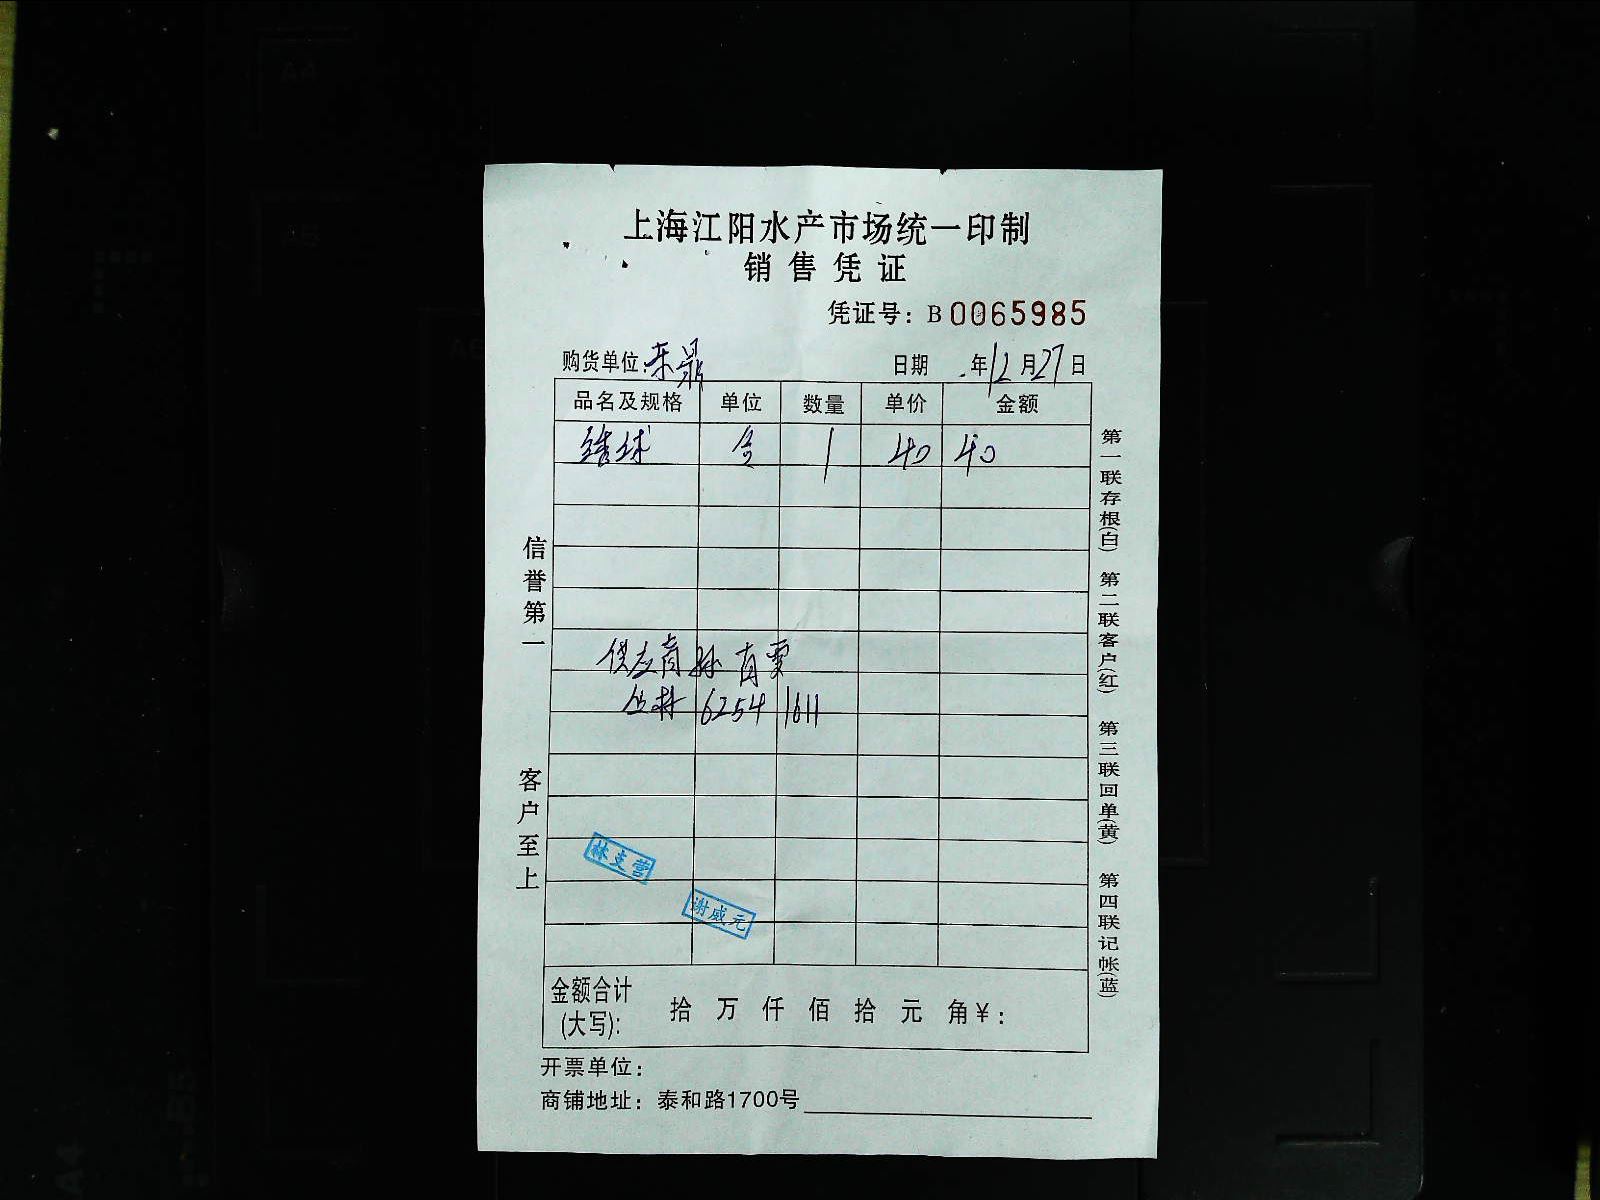 上海江阳水产市场统一印制
销售凭证
凭证号：B0065985
购货单位：来鼎 日期 年12月27日
品名及规格 单位 数量 单价 金额
球 1 40 40
供应商 孙
丛林 6254 1611
林支营
谢威元
金额合计(大写): 拾 万 仟 佰 拾 元 角￥：
开票单位：
商铺地址：泰和路1700号
信誉第一
客户至上
第一联存根(白) 第二联客户(红) 第三联回单(黄) 第四联记帐(蓝)